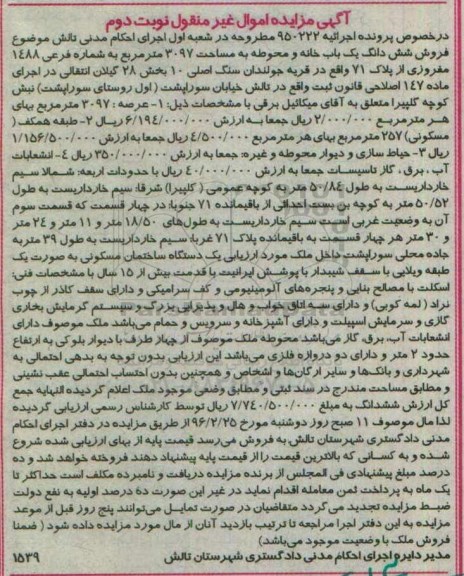 آگهی مزایده اموال غیر منقول نوبت دوم
درخصوص پرونده اجرائیه ۹۵۰۲۲۲ مطروحه در شعبه اول اجرای احکام مدنی تالش موضوع
فروش شش دانگ یک باب خانه و محوطه به مساحت ۳۰۹۷ مترمربع به شماره فرعی ۱۴۸۸
مفروزی از پلاک ۷۱ واقع در قریه جولندان سنگ اصلی ۱۰ بخش ۲۸ گیلان انتقالی در اجرای
ماده ۱۴۷ اصلاحی قانون ثبت واقع در تالش خیابان سوراپشت (اول روستای سوراپشت) نبش
کوچه گلپیرا متعلق به آقای میکائیل برقی با مشخصات ذیل: ۱- عرصه : ۳۰۹۷ مترمربع بهای
هر مترمربع ۲/۰۰۰/۰۰۰ ریال جمعا به ارزش ۶/۱۹۴/۰۰۰/۰۰۰ ریال ۲- طبقه همکف (
مسکونی) ۲۵۷ مترمربع بهای هر مترمربع ۴/۵۰۰/۰۰۰ ریال جمعا به ارزش ۱/۱۵۶/۵۰۰/۰۰۰
ریال ۳- حیاط سازی و دیوار محوطه و غیره: جمعا به ارزش ۳۵۰/۰۰۰/۰۰۰ ریال ۴- انشعابات
آب ، برق ، گاز تاسیسات جمعا به ارزش ۴۰/۰۰۰/۰۰۰ ریال با حدودات اربعه: شمالا سیم
خارداریست به طول ۵۰/۸۴ متر به کوچه عمومی ( کلپیرا) شرقا: سیم خارداریست به طول
۵۰/۵۲ متر به کوچه بن بست احداثی از باقیمانده ۷۱ جنوبا: در چهار قسمت که قسمت سوم
آن به وضعیت غربی است سیم خارداریست به طول‌های ۱۸/۵۰ متر و ۱۱ متر و ۲۴ متر
و ۳۰ متر هر چهار قسمت به باقیمانده پلاک ۷۱ غربا: سیم خارداریست به طول ۳۹ متر به
جاده محلی سوراپشت داخل ملک مورد ارزیابی یک دستگاه ساختمان مسکونی به صورت یک
طبقه ویلایی با سقف شیبدار با پوشش ایرانیت با قدمت بیش از ۱۵ سال با مشخصات فنی:
اسکلت با مصالح بنایی و پنجره‌های آلومینیومی و کف سرامیکی و دارای سقف کاذب از چوب
نراد ( لمه کوبی) و دارای سه اتاق خواب و هال و پذیرایی بزرگ و سیستم گرمایش بخاری
گازی و سرمایش اسپیلت و دارای آشپزخانه و سرویس و حمام می‌باشد ملک موصوف دارای
انشعابات آب، برق، گاز می‌باشد محوطه ملک موصوف از چهار طرف با دیوار بلوکی به ارتفاع
حدود ۲ متر و دارای دو دروازه فلزی می‌باشد این ارزیابی بدون توجه به بدهی احتمالی به
شهرداری و بانک‌ها و سایر ارگان‌ها و اشخاص و همچنین بدون احتساب احتمالی عقب نشینی
و مطابق مساحت مندرج در سند ثبتی و مطابق وضعی موجود ملک اعلام گردیده النهایه جمع
کل ارزش ششدانگ به مبلغ ۷/۷۴۰/۵۰۰/۰۰۰ ریال توسط کارشناس رسمی ارزیابی گردیده
لذا مال موصوف ۱۱ صبح روز دوشنبه مورخ ۹۶/۲/۲۵ از طریق مزایده در دفتر اجرای احکام
مدنی دادگستری شهرستان تالش به فروش می‌رسد قیمت پایه از بهای ارزیابی شده شروع
شده و به کسانی که بالاترین قیمت را از قیمت پایه پیشنهاد دهند فروخته خواهد شد و ده
درصد مبلغ پیشنهادی فی المجلس از برنده مزایده دریافت و نامبرده مکلف است حداکثر تا
یک ماه به پرداخت ثمن معامله اقدام نماید در غیر این صورت ده درصد اولیه به نفع دولت
ضبط مزایده تجدید می‌گردد متقاضیان در صورت تمایل می‌توانند پنج روز قبل از موعد
مزایده به این دفتر اجرا مراجعه تا ترتیب بازدید آنان از مال مورد مزایده داده شود ( ضمنا
فروش ملک با وضعیت موجود می‌باشد)
مدیر دایره اجرای احکام مدنی دادگستری شهرستان تالش ۱۵۳۹